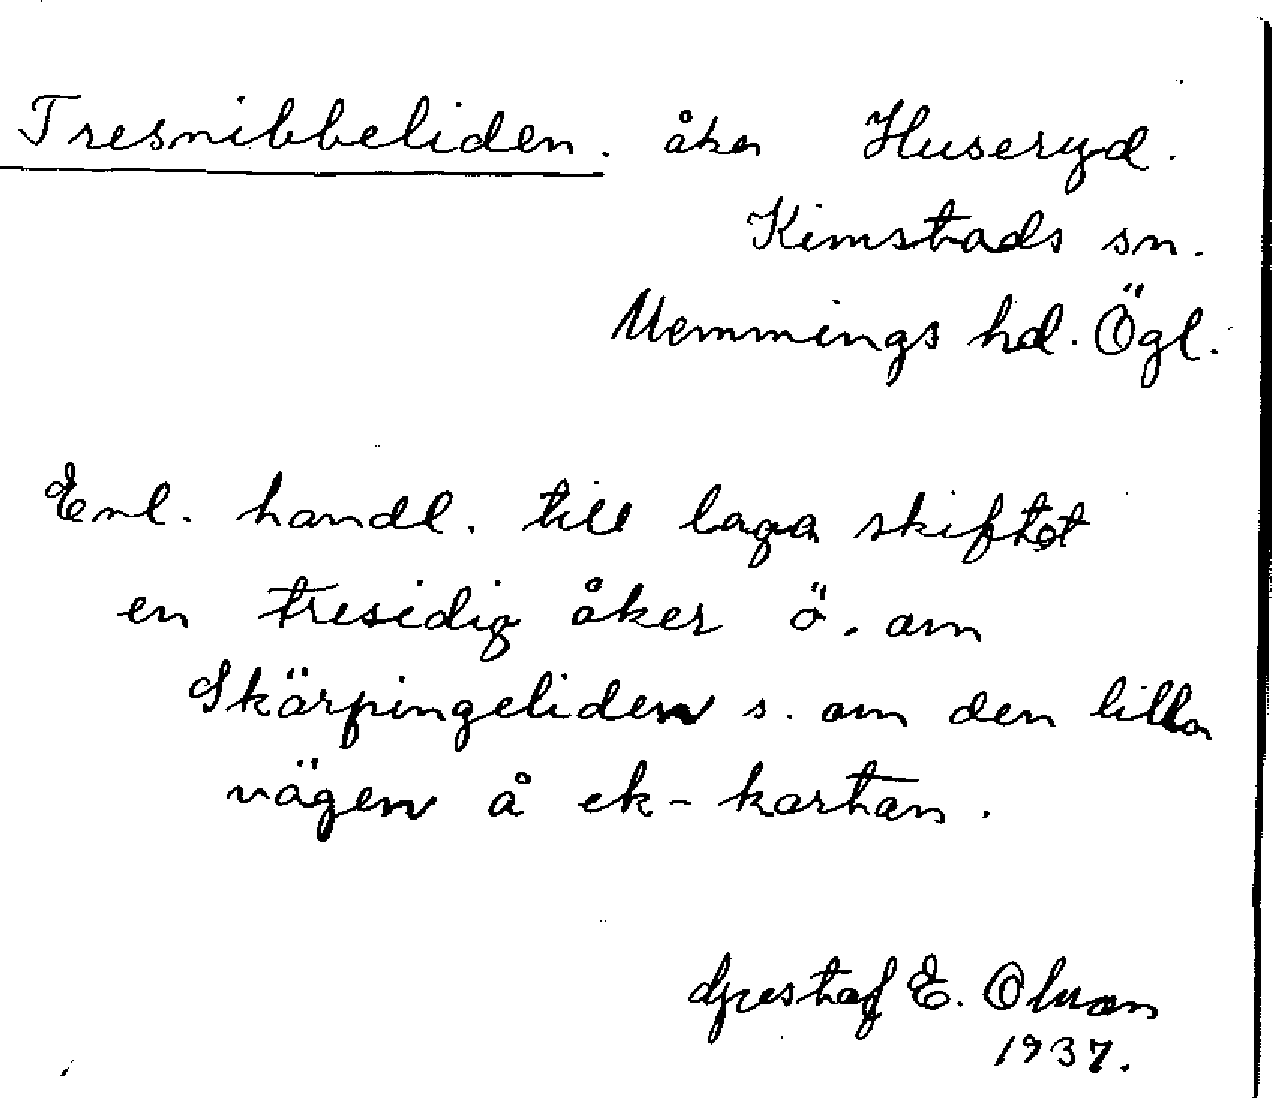 Tresnibbeliden. åker Huseryd.
Kimstads sn.
Memmings hd. Ögl.
Enl. handl. till laga skiftet
en tresidig åker ö. om
Skärpingeliden s. om den lilla
vägen å ek-kartan.
Gustaf E. Olson
1937.